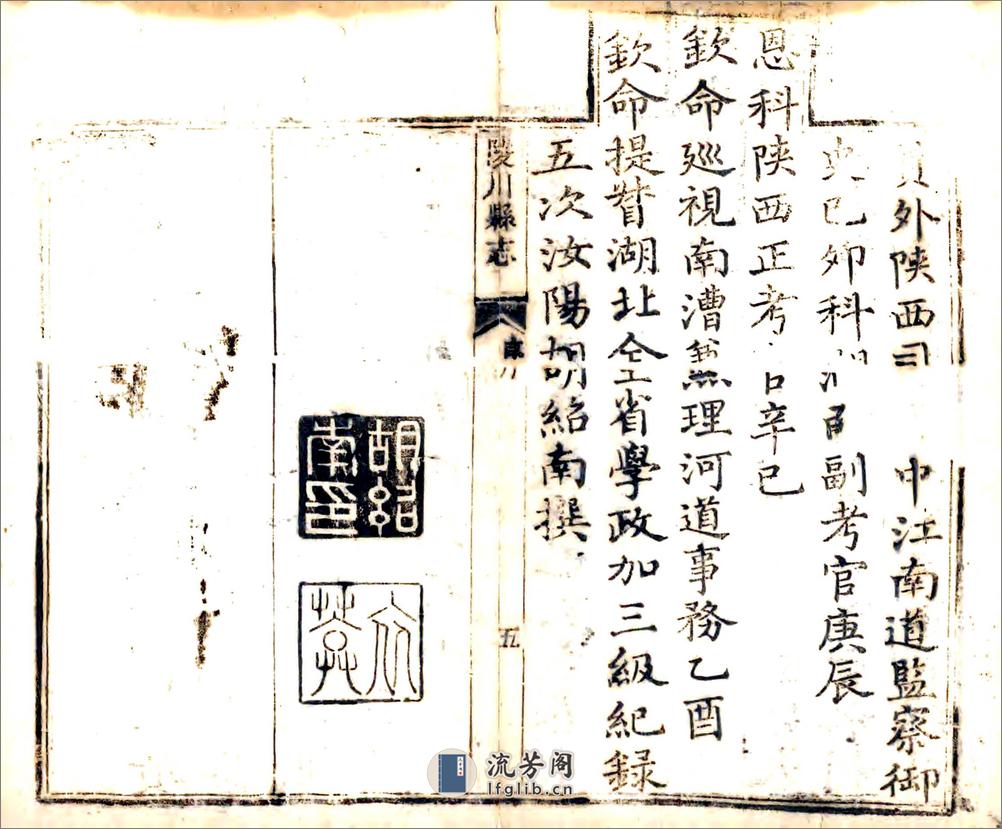 外陝西司 中江南道監察御
史己卯科 副考官庚辰
恩科陝西正考 官辛巳
欽命巡視南漕兼理河道事務乙酉
欽命提督湖北全省學政加三級紀錄
五次汝陽胡紹南撰
陵川縣志
序
五
胡紹南印
衣菴
流芳阁
lfglib.cn